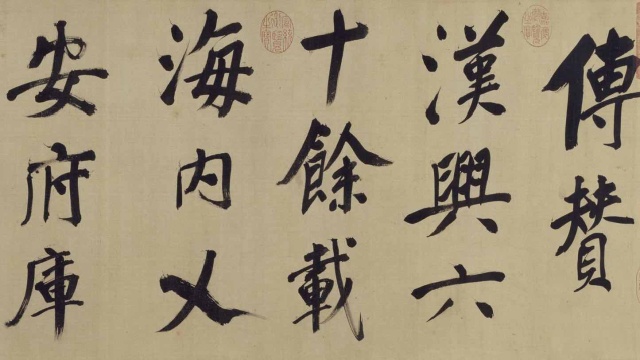 傳贊
漢興六
十餘載
海内乂
安府庫